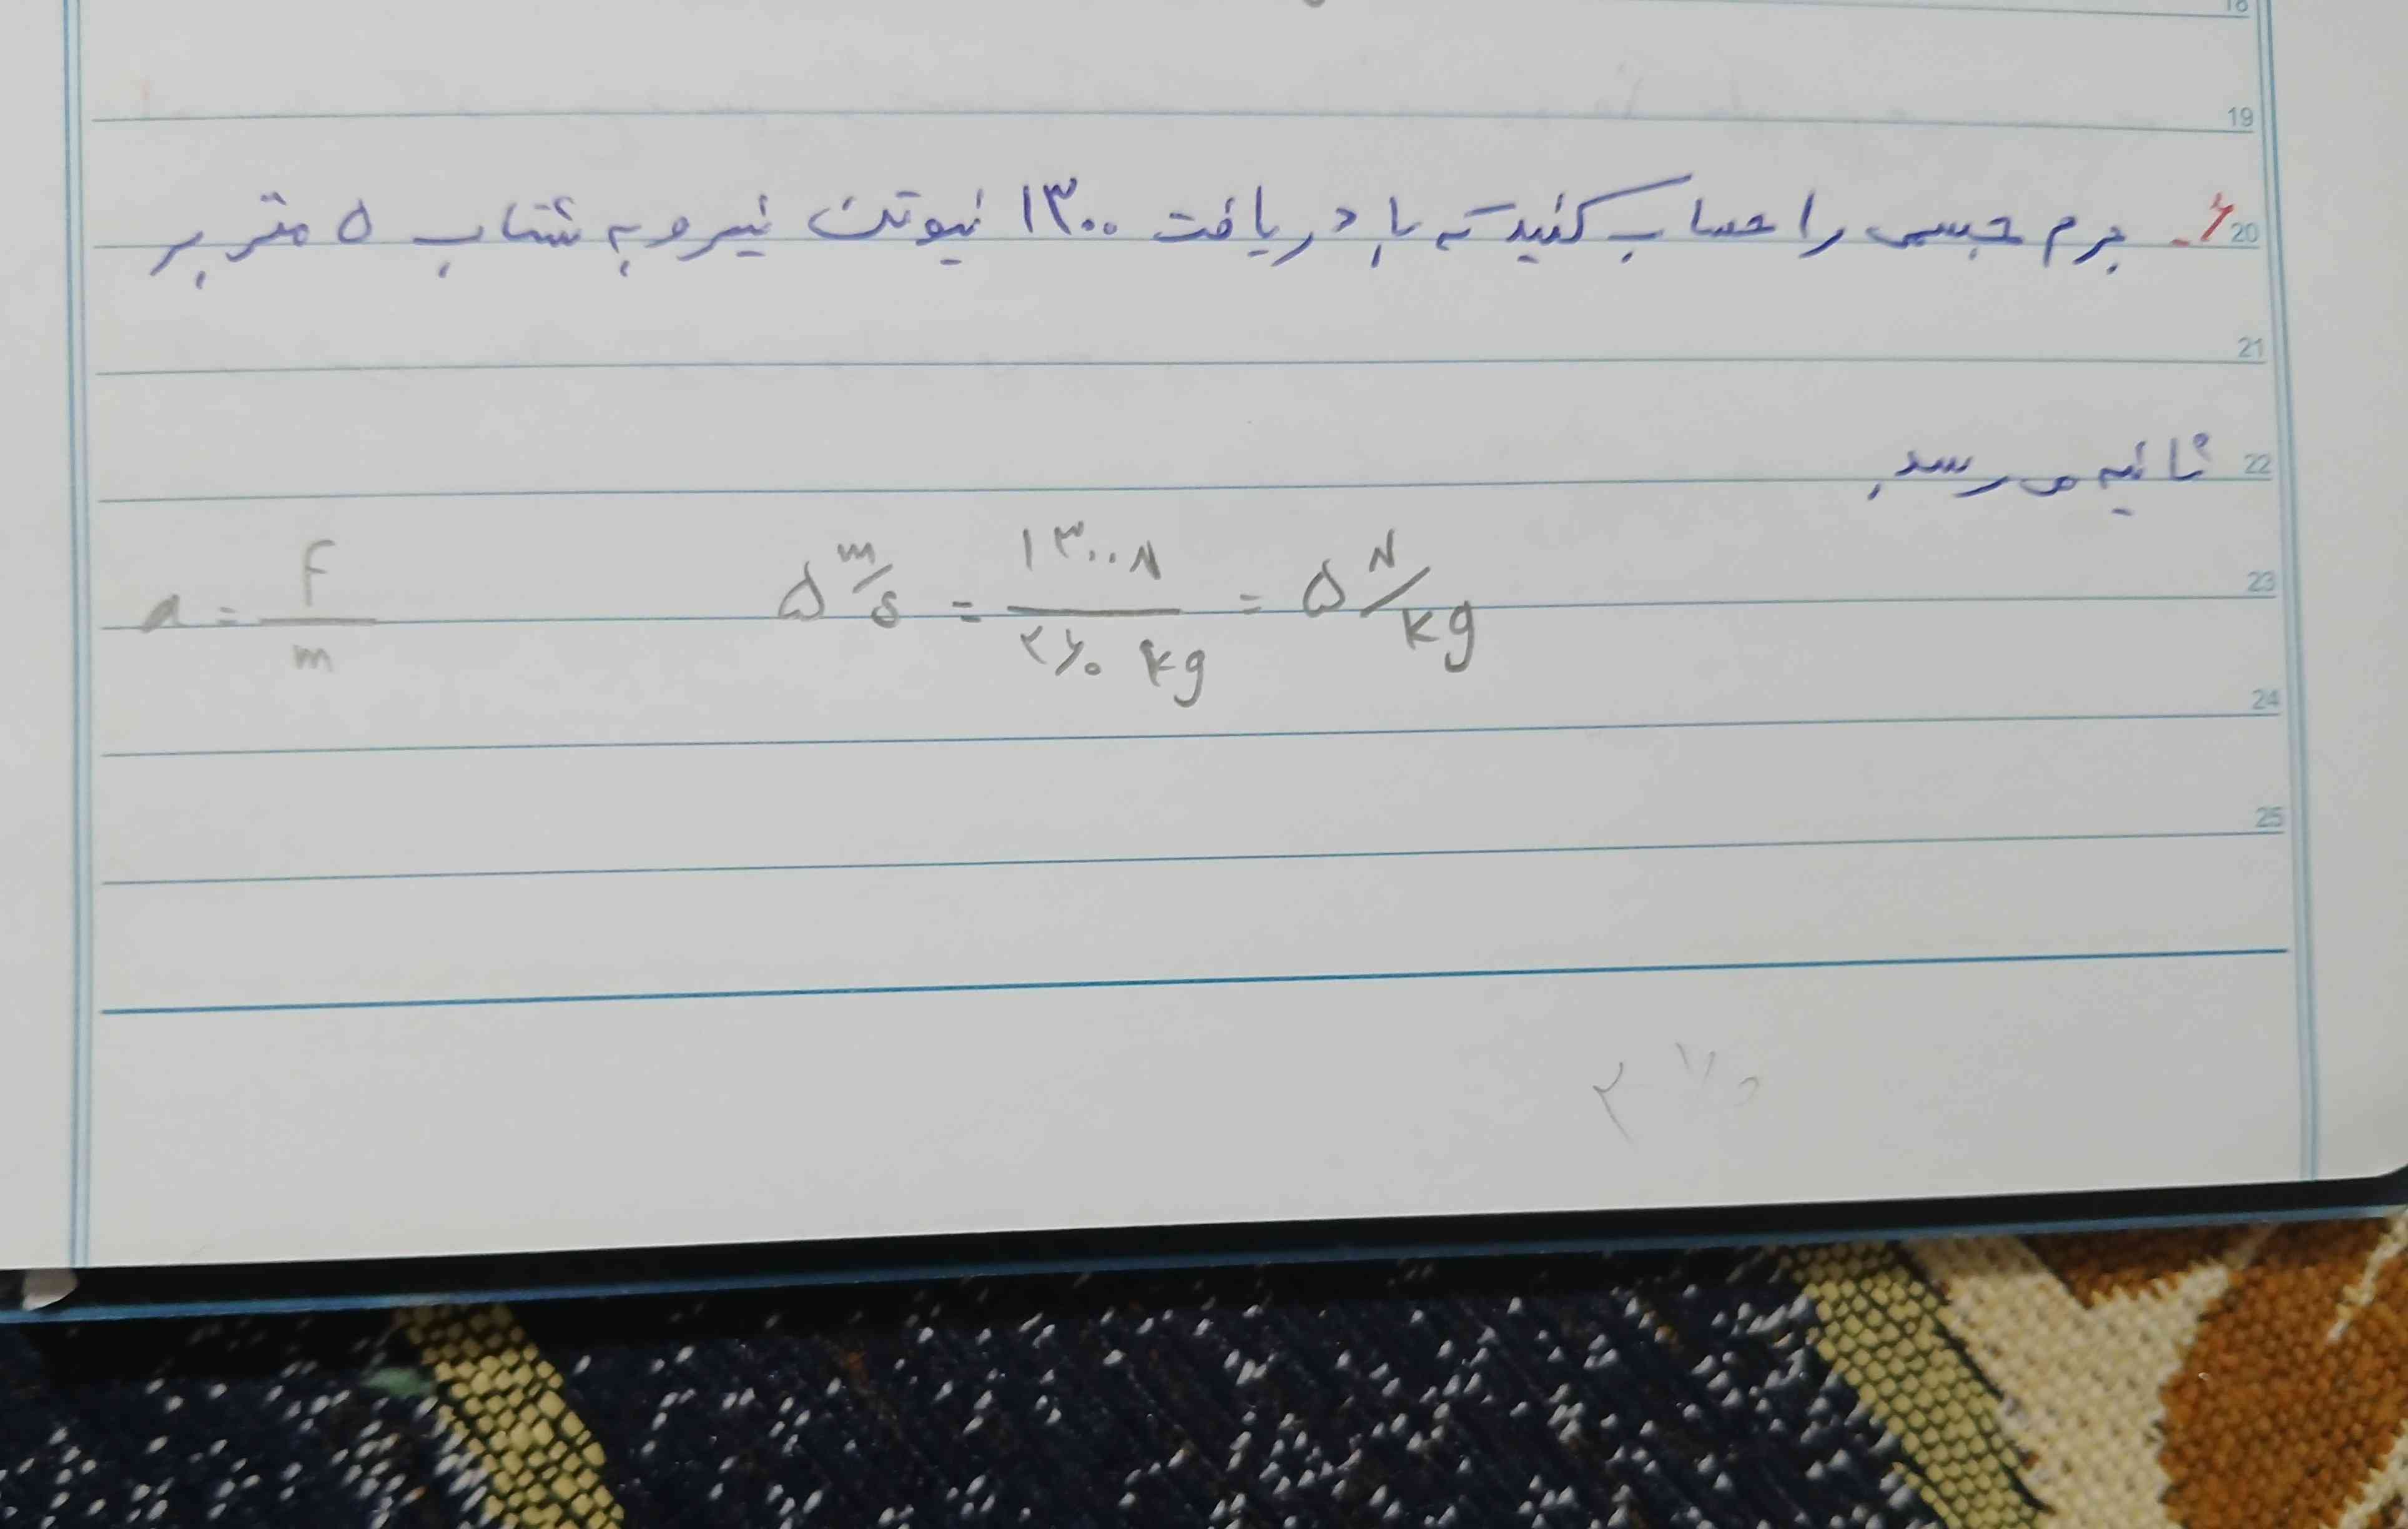 18
19
20 ۶- جرم جسمی را حساب کنید که با دریافت ۱۳۰۰ نیوتن نیرو به شتاب ۵ متر بر
21
22 ثانیه می رسد.
23 a = F/m ۵ m/s = ۱۳۰۰ N / ۲۶۰ kg = ۵ N/kg
24
25